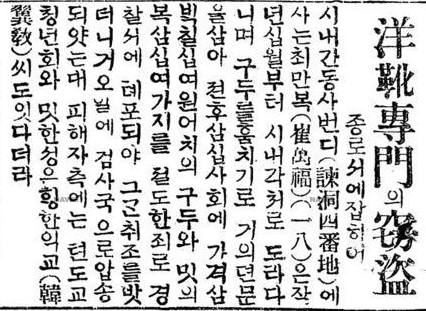 洋靴專門의 竊盜
종로서에잡히어
시내간동사번디(諫洞四番地)에
사는최만복(崔萬福)(一八)은작
년십월부터 시내각처로 도라다
니며 구두를훔치기로 거의뎐문
을삼아 전후삼십사회에 가격삼
빅칠십여원어치의 구두와 밋의
복삼십여가지를 절도한죄로 경
찰서에 톄포되야 그간취조를맛
더니거오일에 검사국으로압송
되얏는대 피해자측에는 텬도교
청년회와 밋한성은힝한익교(韓
翼敎)씨도잇다더라